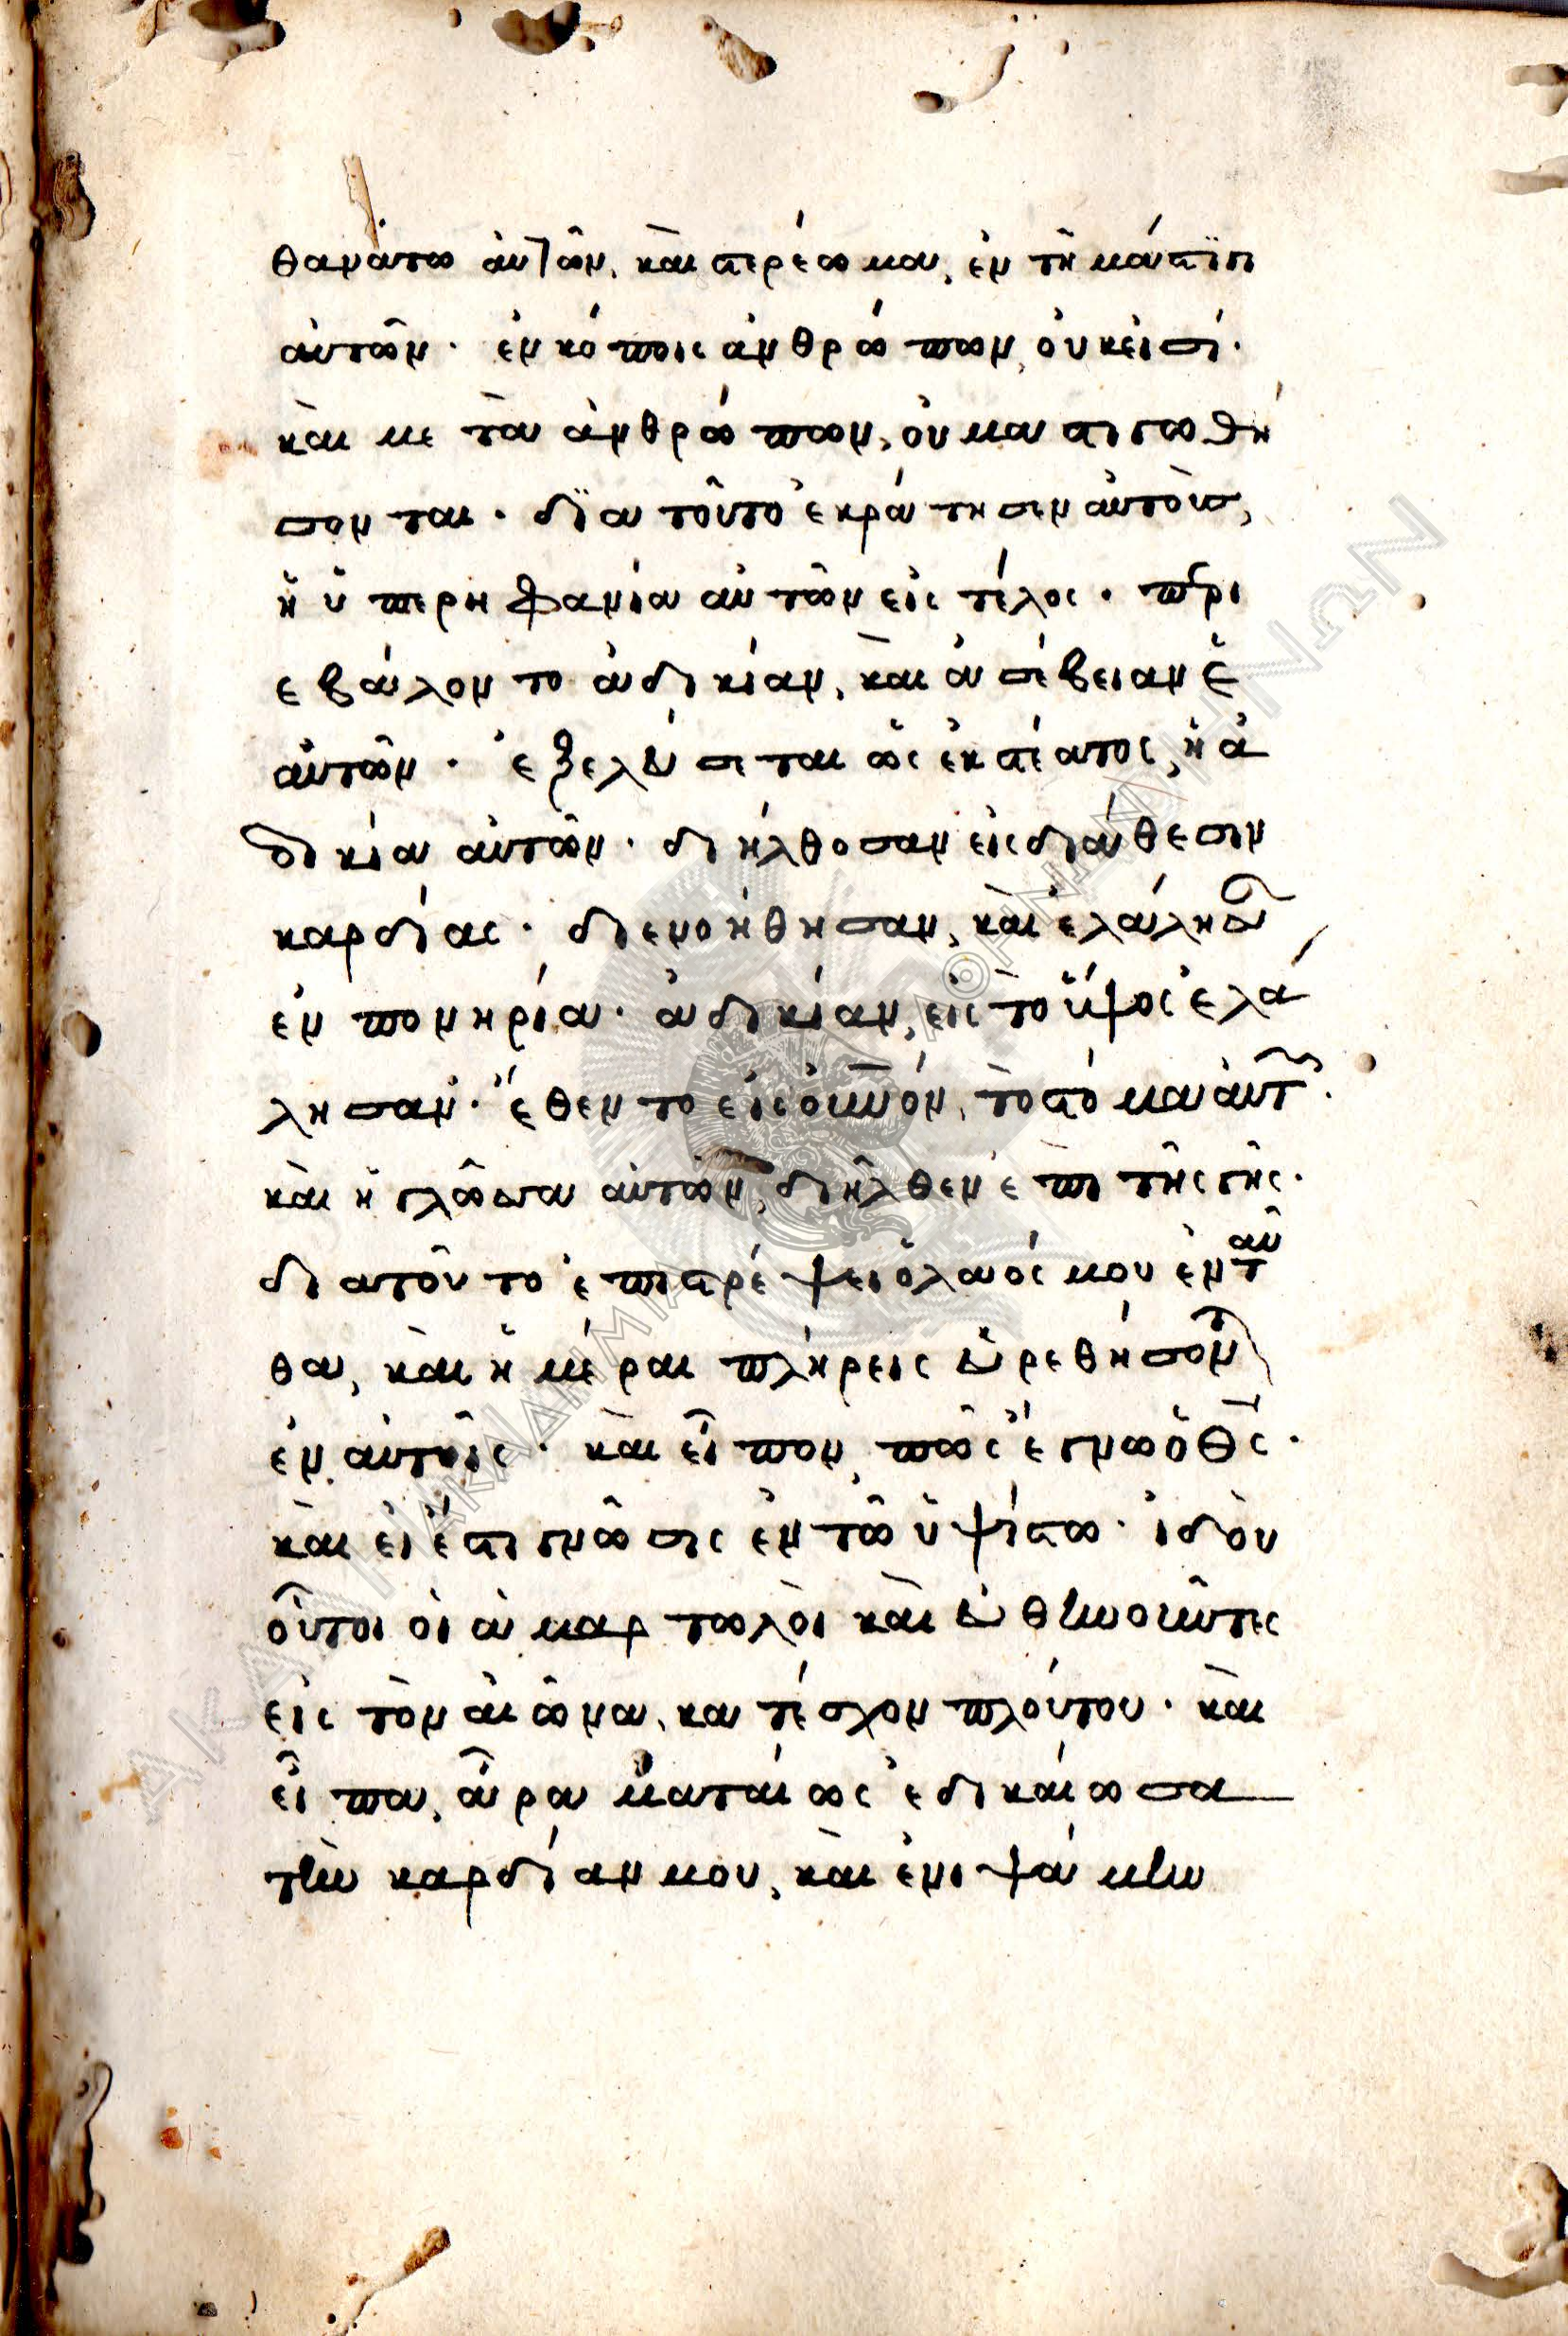 θανάτω αὐτῶν, καὶ στερέωμα, ἐν τῆ μάστϊγι
αὐτῶν. ἐν κόποις ἀνθρώπων, οὐκ εἰσί.
καὶ μετὰ ἀνθρώπων, οὐ μαστιγωθή
σονται. δϊα τοῦτο ἐκράτησεν αὐτοὺσ,
ἡ ὑπερηφανία αὐτῶν εἰς τέλος. περι
εβάλοντο ἀδικίαν, καὶ ἀσέβειαν ἑ
αὐτῶν. ἐξελεύσεται ὡς ἐκ στέατος, ἡ ἀ
δικία αὐτῶν. διήλθοσαν εἰς διάθεσιν
καρδίας. διενοήθησαν, καὶ ἐλάλησαν
ἐν πονηρία. ἀδικίαν, εἰς τὸ ὕψος ἐλά
λησαν. ἔθεντο εἰς οὐνον, τὸ στόμα αὐτ
καὶ ἡ γλῶσσα αὐτῶν, διῆλθεν ἐπι τῆς γῆς.
διατοῦτο ἐπιστρέψει ὁ λαός μου ἐνταῦ
θα, καὶ ἡμέραι πλήρεις εὑρεθήσονται
ἐν αὐτοῖς. καὶ εἶπον, πῶς ἔγνω ὁ θς.
καὶ εἰ ἔστι γνῶσις ἐν τῶ ὑψίστω. ἰδοὺ
οὗτοι οἱ ἁμαρτωλοὶ καὶ εὐθηνοῦντες
εἰς τὸν αἰῶνα, κατέσχον πλούτου. καὶ
εἶπα, ἆρα ματαίως ἐδικαίωσα
τὴν καρδίαν μου, καὶ ἐνιψάμην